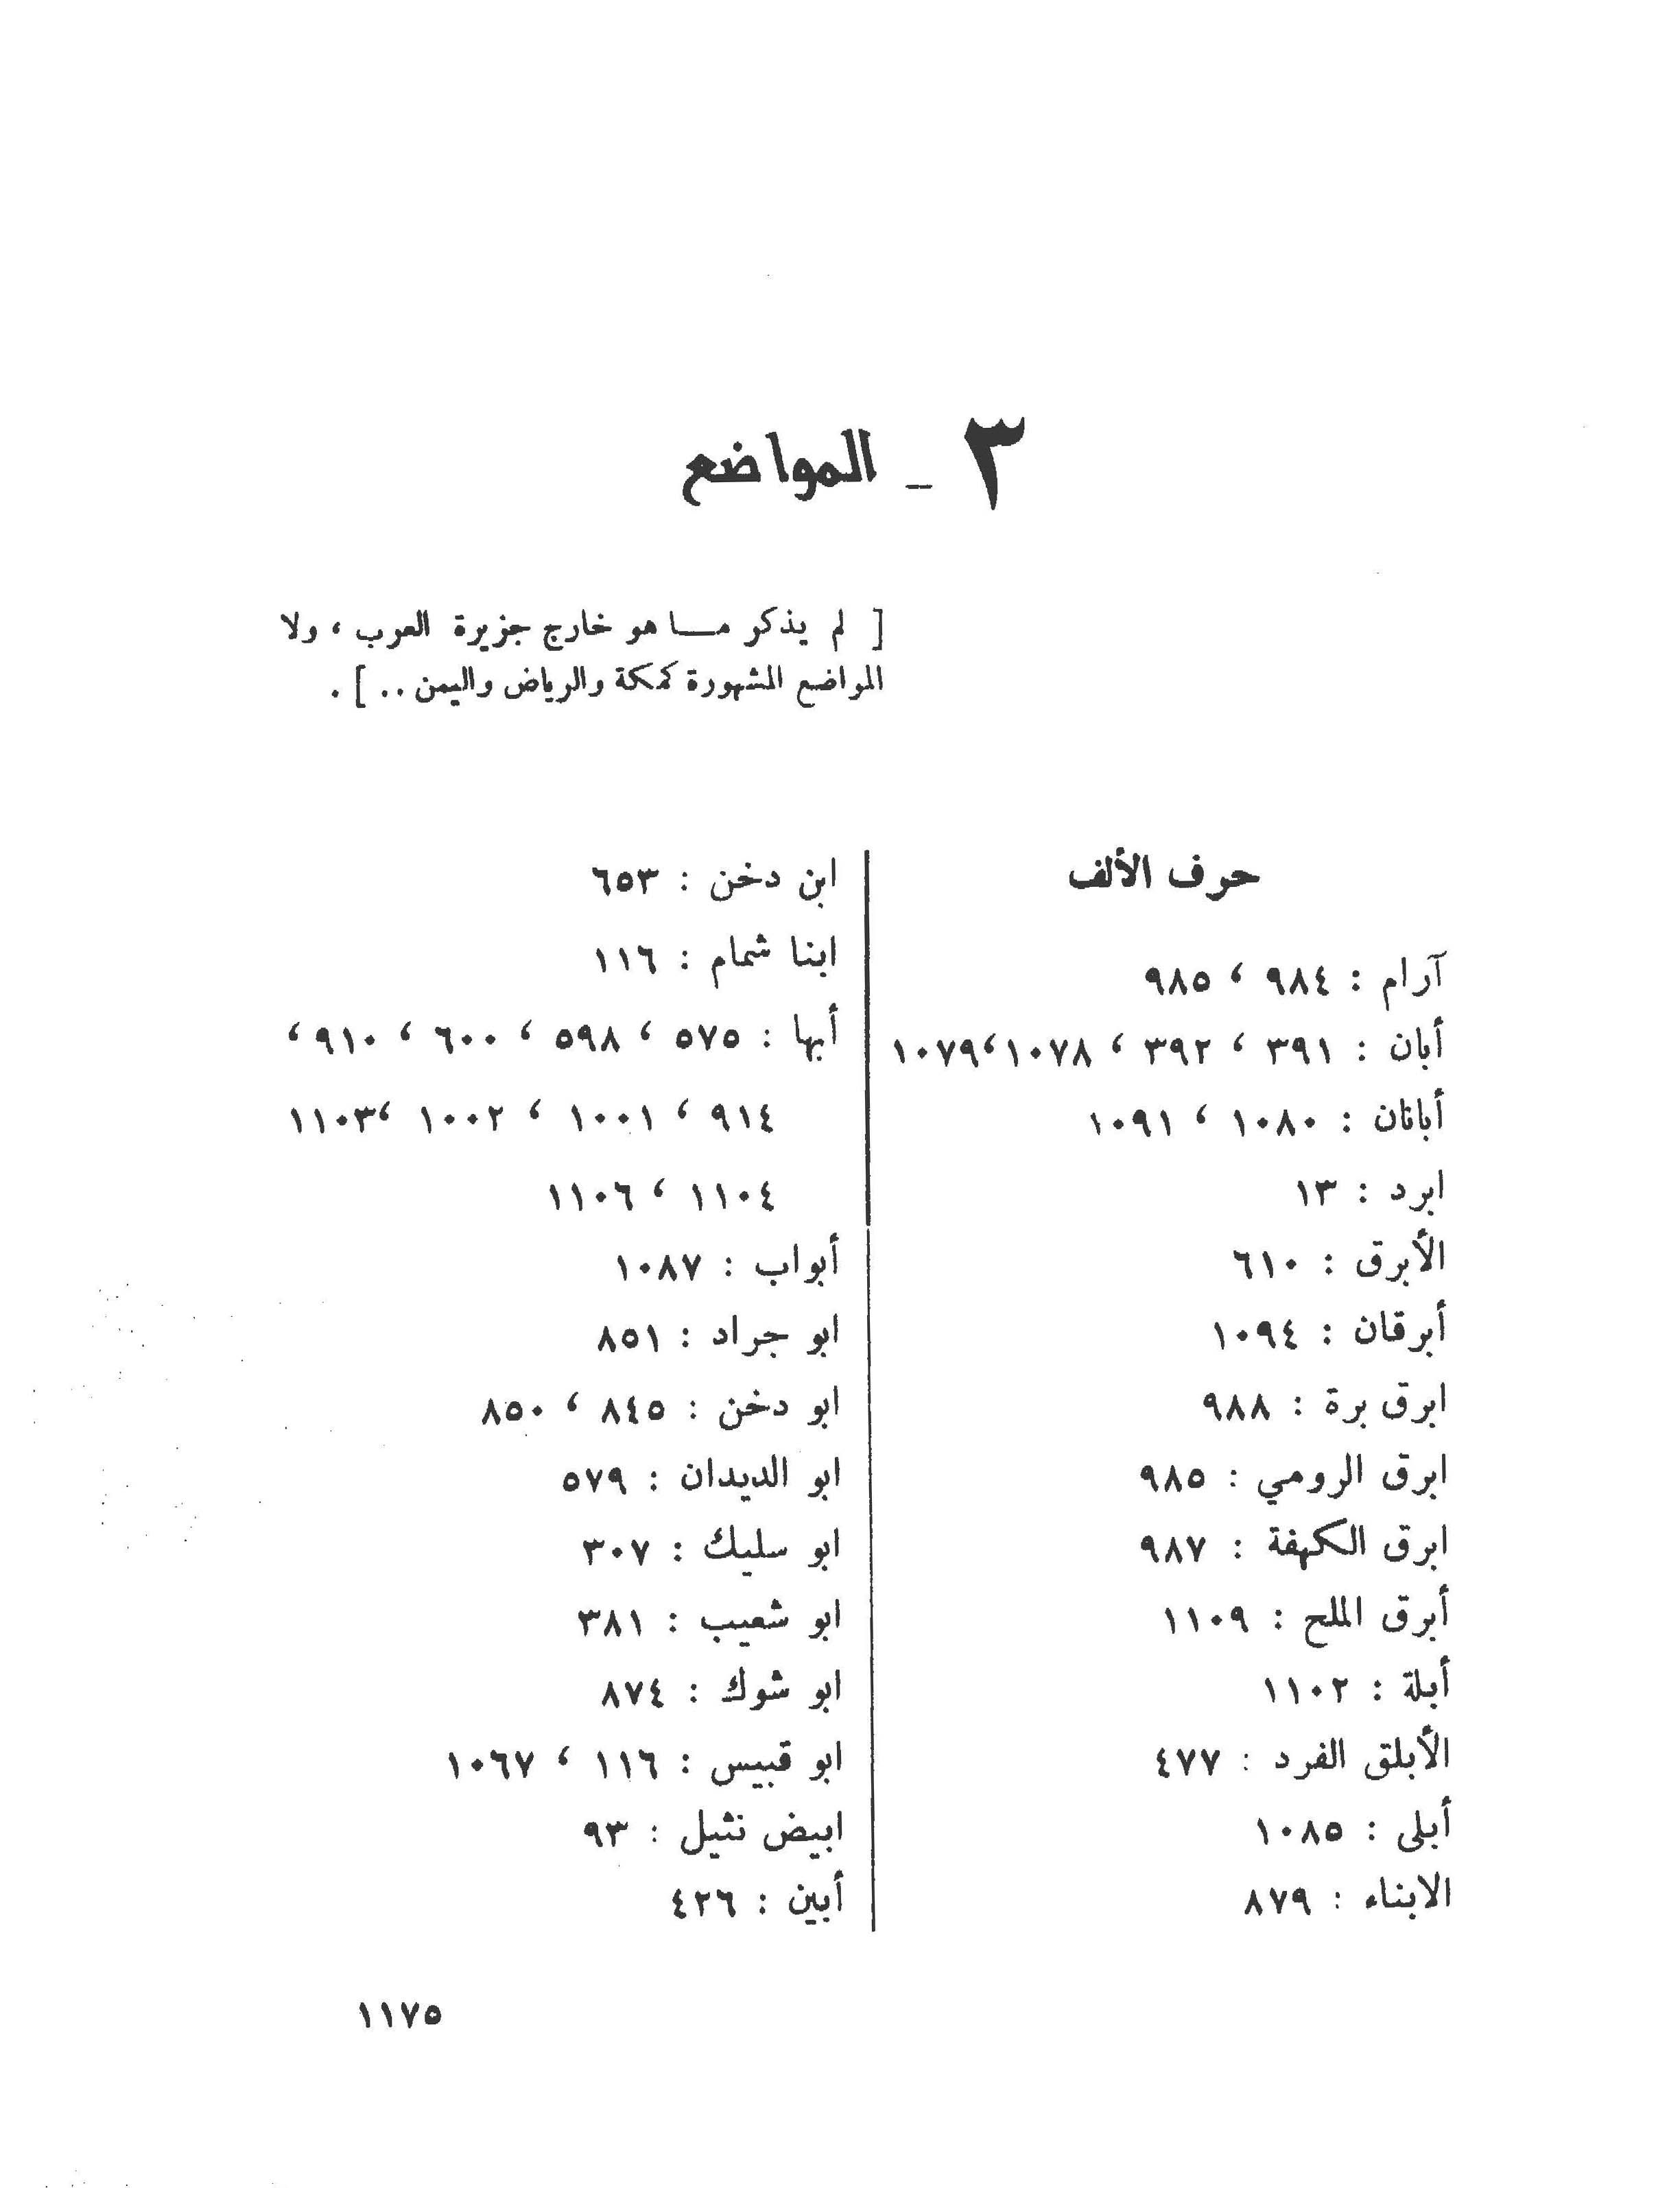 ٣ - المواضع
[ لم يذكر ما هو خارج جزيرة العرب ، ولا
المواضع المشهورة كمكة والرياض واليمن .. ] .
حرف الألف
آرام : ٩٨٤ ، ٩٨٥
أبان : ٣٩١ ، ٣٩٢ ، ١٠٧٨،١٠٧٩
أبانان : ١٠٨٠ ، ١٠٩١
ابرد : ١٣
الأبرق : ٦١٠
أبرقان : ١٠٩٤
ابرق برة : ٩٨٨
ابرق الرومي : ٩٨٥
ابرق الكهفة : ٩٨٧
أبرق الملح : ١١٠٩
أبلة : ١١٠٢
الأبلق الفرد : ٤٧٧
أبلى : ١٠٨٥
الابناء : ٨٧٩
ابن دخن : ٦٥٣
ابنا شمام : ١١٦
أبها : ٥٧٥ ، ٥٩٨ ، ٦٠٠ ، ٩١٠ ،
٩١٤ ، ١٠٠١ ، ١٠٠٢ ،١١٠٣
١١٠٤ ، ١١٠٦
أبواب : ١٠٨٧
ابو جراد : ٨٥١
ابو دخن : ٨٤٥ ، ٨٥٠
ابو الديدان : ٥٧٩
ابو سليك : ٣٠٧
ابو شعيب : ٣٨١
ابو شوك : ٨٧٤
ابو قبيس : ١١٦ ، ١٠٦٧
ابيض نثيل : ٩٣
أبين : ٤٢٦
١١٧٥